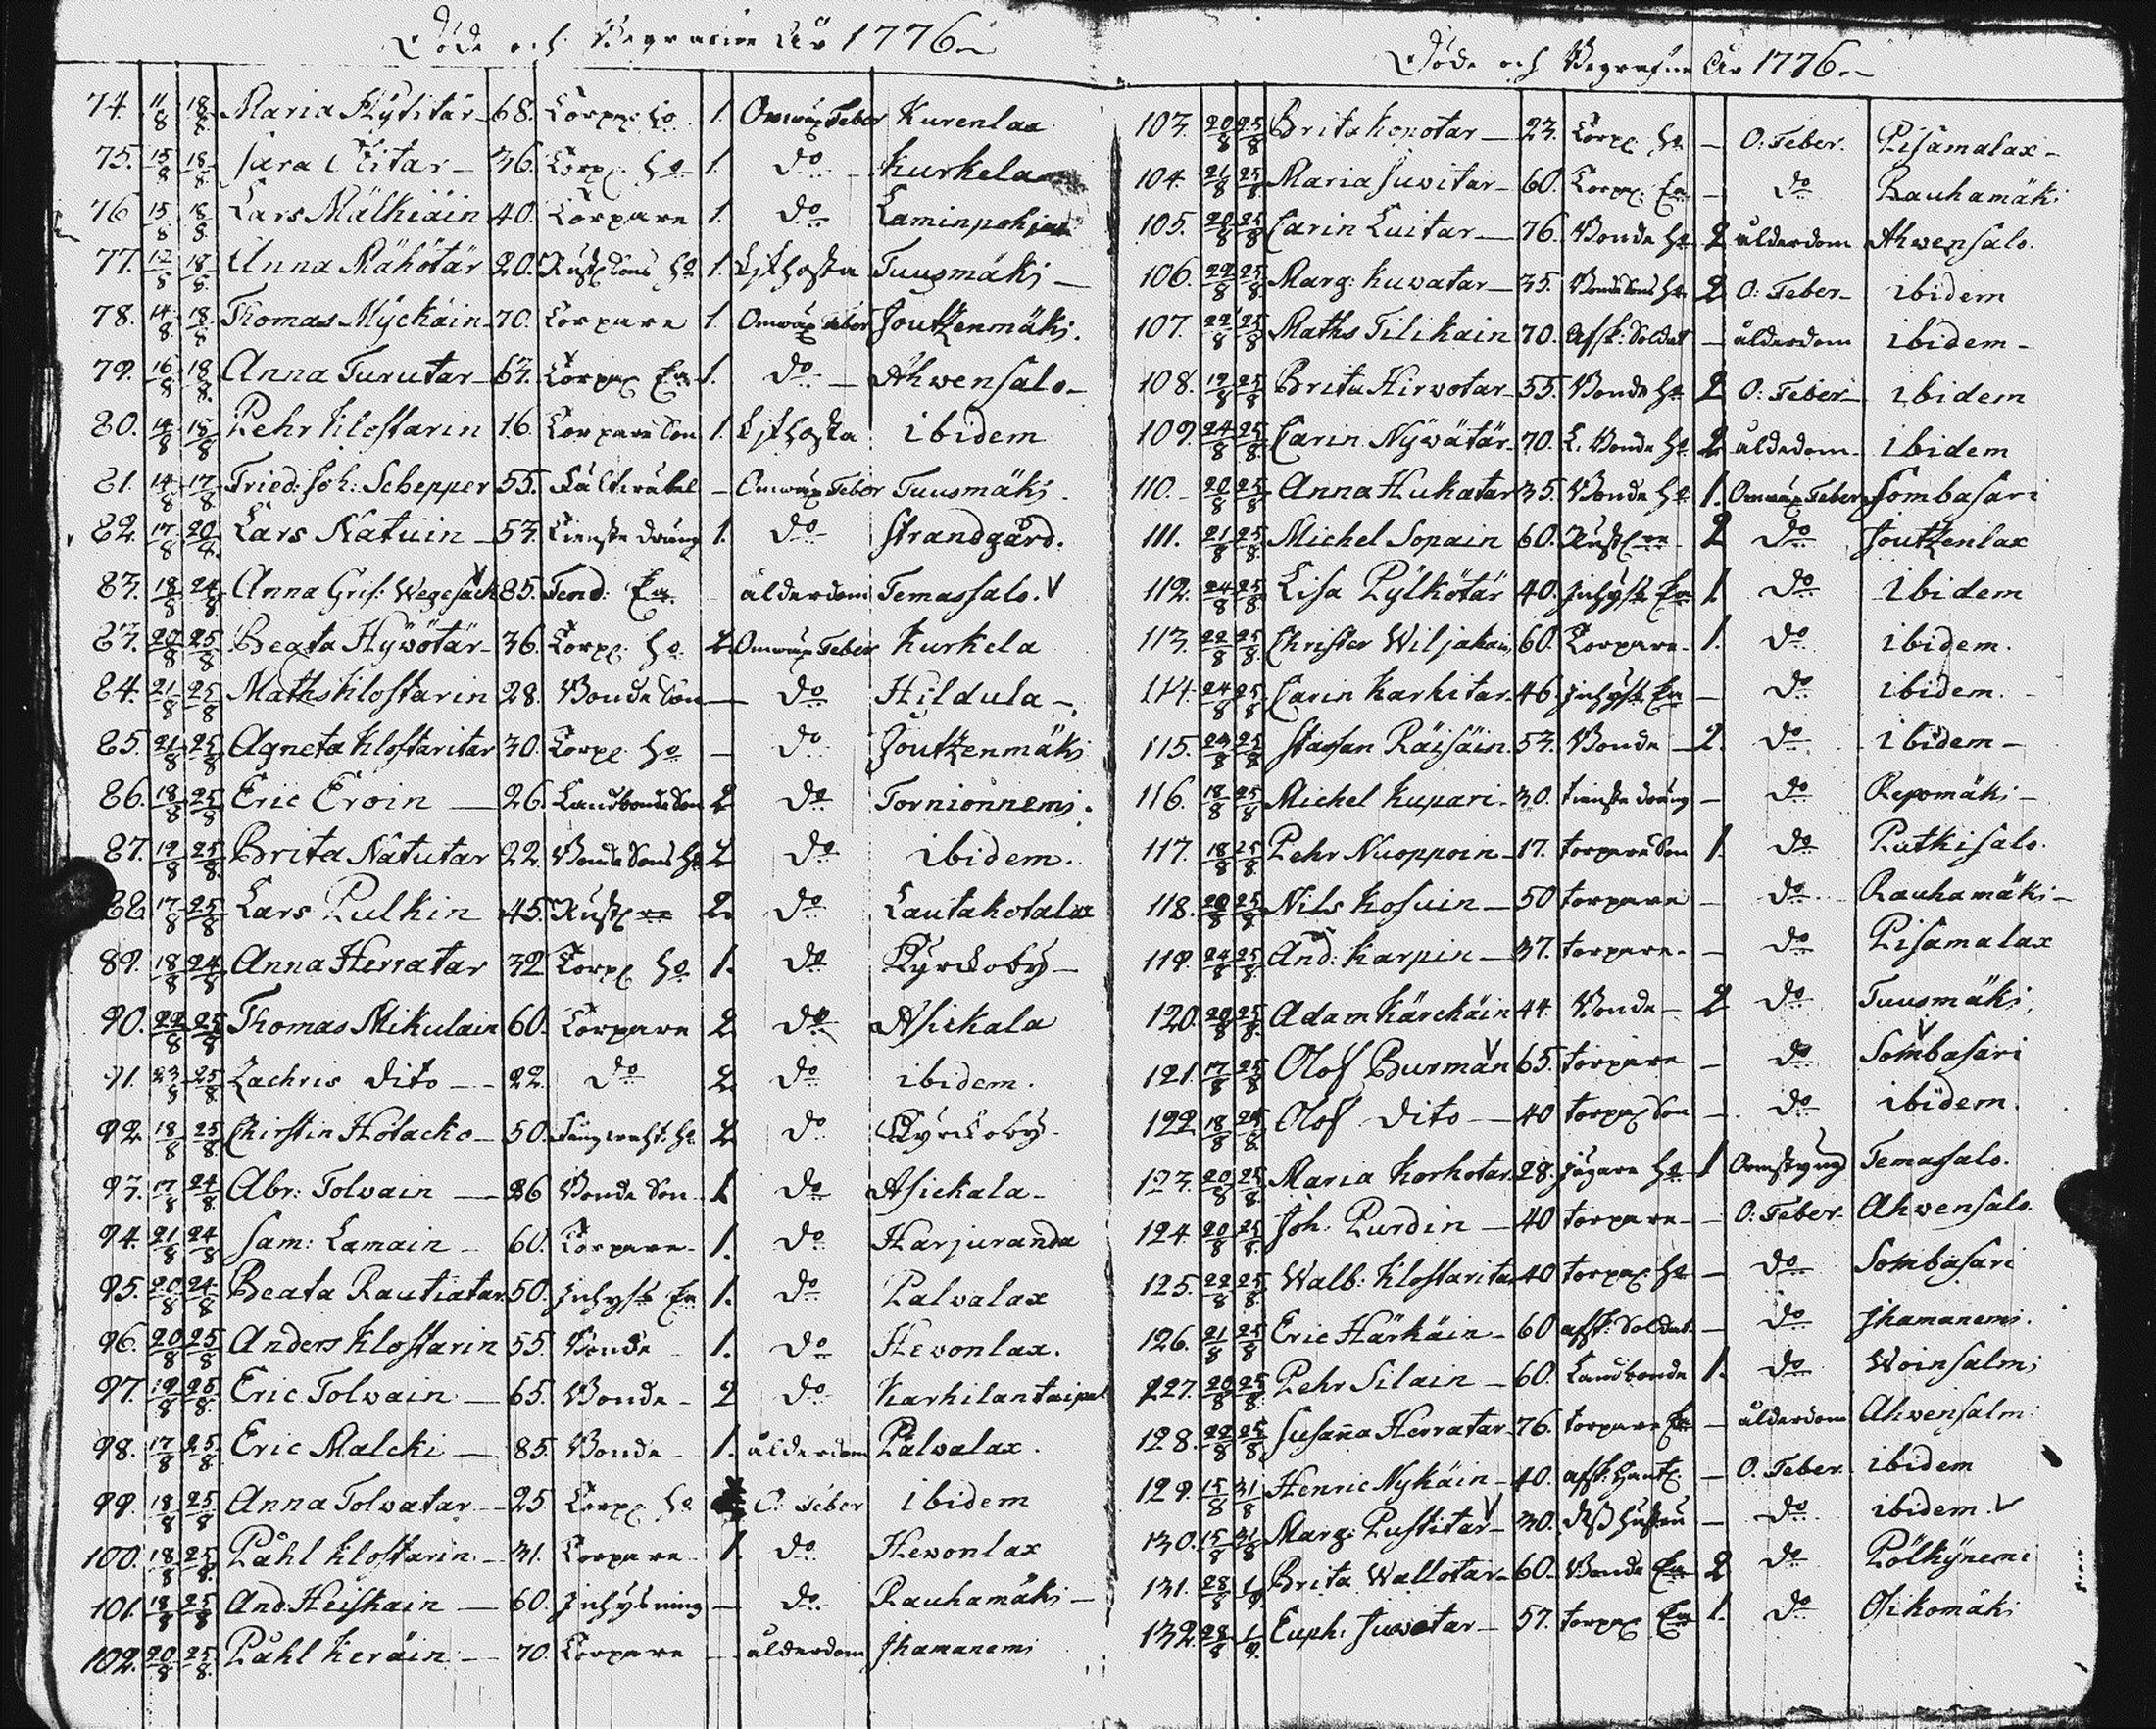 Döde och Begrafne År 1776
74. 11/8 18/8 Maria Hytitär 68. Torp: H:o 1. Omväx Feber Kurenlax
75. 15/8 18/8 Sara 36. Torp: H:o 1. D:o Kurkela
76 15/8 18/8 Lars Mälkiäin 40. Torpare 1. D:o Laminpohja
77. 12/8 18/8 Anna Mähötär 20. Rust: Sons H:o 1. Tuusmäki
78. 14/8 18/8 Thomas Myckäin 70. Torpare 1. Omväx Feber Joutzenmäki.
79. 16/8 18/8 Anna Turutar 63. Torpa: Ea 1. D:o Ahwensalo
80. 14/8 18/8 Pehr Klossarin 16. Torpare Son 1. ibidem
81. 14/8 17/8 Fried: Joh: Schepper 55. - Omväx Feber Tuusmäki
82. 17/8 20/8 Lars Natuin 53. Tienste dräng 1. D:o Strandgård.
83. 18/8 24/8 Anna Gris: Wegesack 85. Fend: Ea ålderdom Temassalo. V
83. 20/8 25/8 Beata Hywötär 36. Torp: H:o 2 Omväx Feber Kurkela
84. 21/8 25/8 Maths Klossarin 28. Bonde Son - D:o Hildula
85. 21/8 25/8 Agneta Klossaritar 30. Torp: H:o - D:o Joutzenmäki
86. 18/8 25/8 Eric Eroin 26. Landbonde Son 2 D:o Tornionnemi.
87. 19/8 25/8 Brita Natutar 22. Bonde Sons H:o 2 D:o ibidem.
88 17/8 25/8 Lars Pulkin 45. Rust:re 2. D:o Lautakotalax
89. 18/8 24/8 Anna Herratar 32 Torp: H:o 1. D:o Kyrckoby
90. 22/8 25/8 Thomas Mikulain 60. Torpare 2 D:o Asickala
91. 23/8 25/8 Zachris dito 22. D:o 2 D:o ibidem.
92 18/8 25/8 Chirstin Holacko 50. H:o 2 D:o Kyrckoby
93. 17/8 24/8 Abr: Tolvain 26 Bonde Son 1 D:o Asickala
94. 21/8 24/8 Sam: Lamain 60. Torpare 1. D:o Harjuranda
95. 20/8 24/8 Beata Rautiatar 50. Inhys: Ea 1. D:o Palvalax
96. 20/8 25/8 Anders Klossarin 55. Bonde 1. D:o Hevonlax.
97. 19/8 25/8 Eric Tolvain 65. Bonde 2 D:o Karhilantaipal
98. 17/8 25/8 Eric Malcki 85. Bonde 1. ålderdom Palvalax.
99. 18/8 25/8 Anna Tolvatar 25 Torp: H:o O: Feber ibidem
100. 18/8 25/8 Påhl Klossarin 31. Torpare 1. D:o Hevonlax
101. 18/8 25/8 And: Heiskain 60. Inhysning - D:o Rauhamäki
102. 20/8 25/8 Påhl Keräin 70. Torpare - ålderdom Ihamanemi
Döde och Begrafne År 1776
103. 20/8 25/8 Brita Konotar 23. Torp: H:o - O: Feber. Pisamalax
104. 21/8 25/8 Maria Juvitar 60. Torp: Ea - D:o Rauhamäki
105. 20/8 25/8 Carin Luitar 76. Bonde H:o 2 ålderdom Ahwensalo.
106. 22/8 25/8 Marg: Kuvatar 35. Bonde Sons H:o 2 O: Feber ibidem
107. 22/8 25/8 Maths Tilikain 70. Afsk: Soldat - ålderdom ibidem
108. 19/8 25/8 Brita Hirvotar 55. Bonde H:o 2 O: Feber ibidem
109. 24/8 25/8 Carin Nywätär 70. L. Bonde H:o 2 ålderdom ibidem
110. 20/8 25/8 Anna Hukatar 35. Bonde H:o 1. Omväx Feber Sombasari
111. 21/8 25/8 Michel Sopain 60. Rust:re 2 D:o Joutzenlax
112. 24/8 25/8 Lisa Pylkötär 40. Inhys: Ea 1 D:o ibidem
113. 22/8 25/8 Christer Wiljakain 60. Torpare 1. D:o ibidem.
114. 24/8 25/8 Carin Karhitar 46 Inhys: Ea - D:o ibidem.
115. 23/8 25/8 Staffan Räisäin 53. Bonde 2. D:o ibidem
116. 18/8 25/8 Michel Kupari 30. tienste dräng - D:o Repomäki
117. 18/8 25/8 Pehr Nuoppoin 17. torpare Son 1. D:o Putkisalo.
118. 20/8 25/8 Nils Kosuin 50 torpare - D:o Rauhamäki
119. 24/8 25/8 And: Karpin 37. torpare - D:o Pisamalax
120. 20/8 25/8 Adam Kärckäin 44 Bonde 2 D:o Tuusmäki
121. 17/8 25/8 Olof Burman V 65. torpare - D:o Sombasari V
122 18/8 25/8 Olof dito 40 torpa: Son - D:o ibidem.
123. 20/8 25/8 Maria Korhotar 28. Jägare H:o 1 Ormstyng Temassalo.
124 20/8 25/8 Joh: Purdin 40 torpare - O: Feber. Ahwensalo.
125. 22/8 25/8 Walb: Klossaritar 40 torpa: H:o - D:o Sombasari
126. 21/8 25/8 Eric Härkäin 60 afsk: Soldat - D:o Ihamanemi.
227. 20/8 25/8 Pehr Silain 60. Landbonde 1. D:o Woinsalmi
128. 22/8 25/8 Susanna Herratar 76. torpare Ea - ålderdom Ahwensalmi
129. 15/8 31/8 Henric Nykäin 40. afsk: - O. Feber. ibidem
130. 15/8 31/8 Marg: Pussitar V 30. dess hustru - D:o ibidem. V
131. 28/8 1/9 Brita Wallotar 60. Bonde Ea 2 D:o Pölkynemi
132 28/8 1/9 Euph: Juvotar 57. torpa: Ea 1. D:o Oikomäki